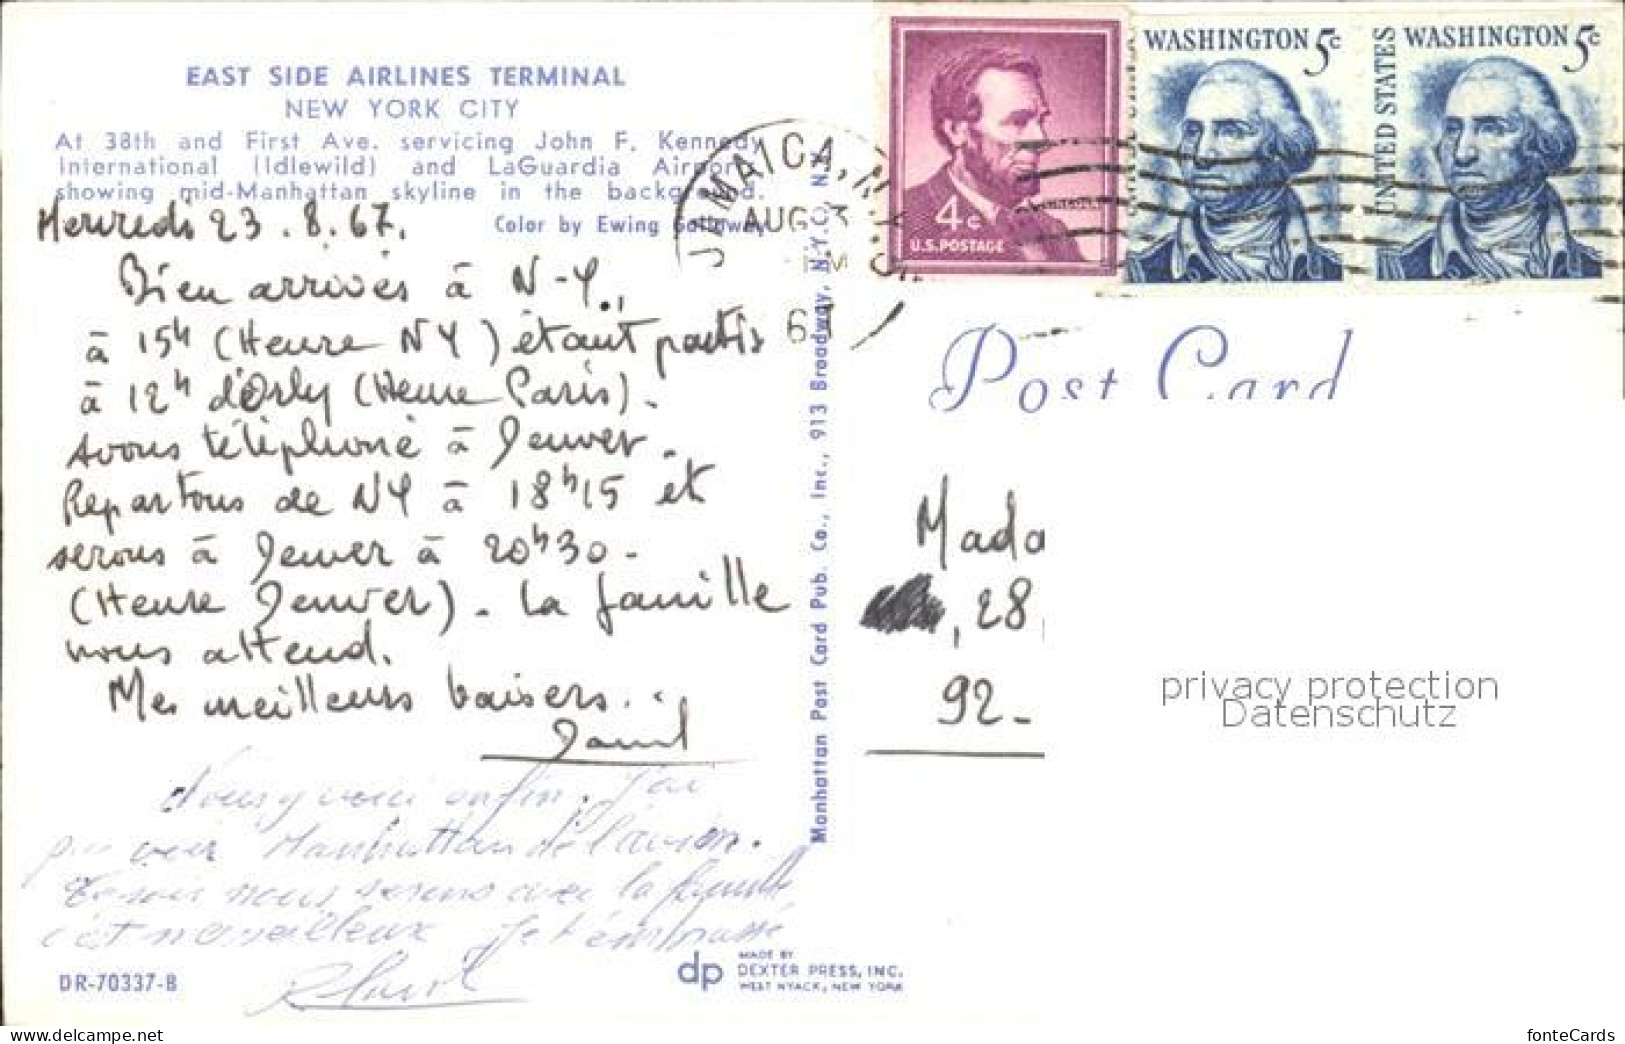 EAST SIDE AIRLINES TERMINAL
NEW YORK CITY
At 38th and First Ave. servicing John F. Kennedy
International (Idlewild) and LaGuardia Airports
showing mid-Manhattan skyline in the background.
Color by Ewing Galloway
Mercredi 23.8.67.
Bien arrivés à N-Y.,
à 15h (Heure NY) étant partis
à 12h d'Orly (Heure Paris).
Avons téléphoné à Denver.
Repartons de NY à 18h15 et
serons à Denver à 20h30-
(Heure Denver). La famille
nous attend.
Mes meilleurs baisers..
Nous y voici enfin. J'ai
pu voir Manhattan de l'avion.
Ce soir nous serons avec la famille
c'est merveilleux Je t'embrasse
DR-70337-B
dp
MADE BY
DEXTER PRESS, INC.
WEST NYACK, NEW YORK
Manhattan Post Card Pub. Co., Inc., 913 Broadway, N.Y.C., N.Y.
JAMAICA, N.Y.
AUG
4c
U.S. POSTAGE
WASHINGTON 5c
UNITED STATES
WASHINGTON 5c
Post Card
Mada
, 28,
92-
privacy protection
Datenschutz
fonteCards